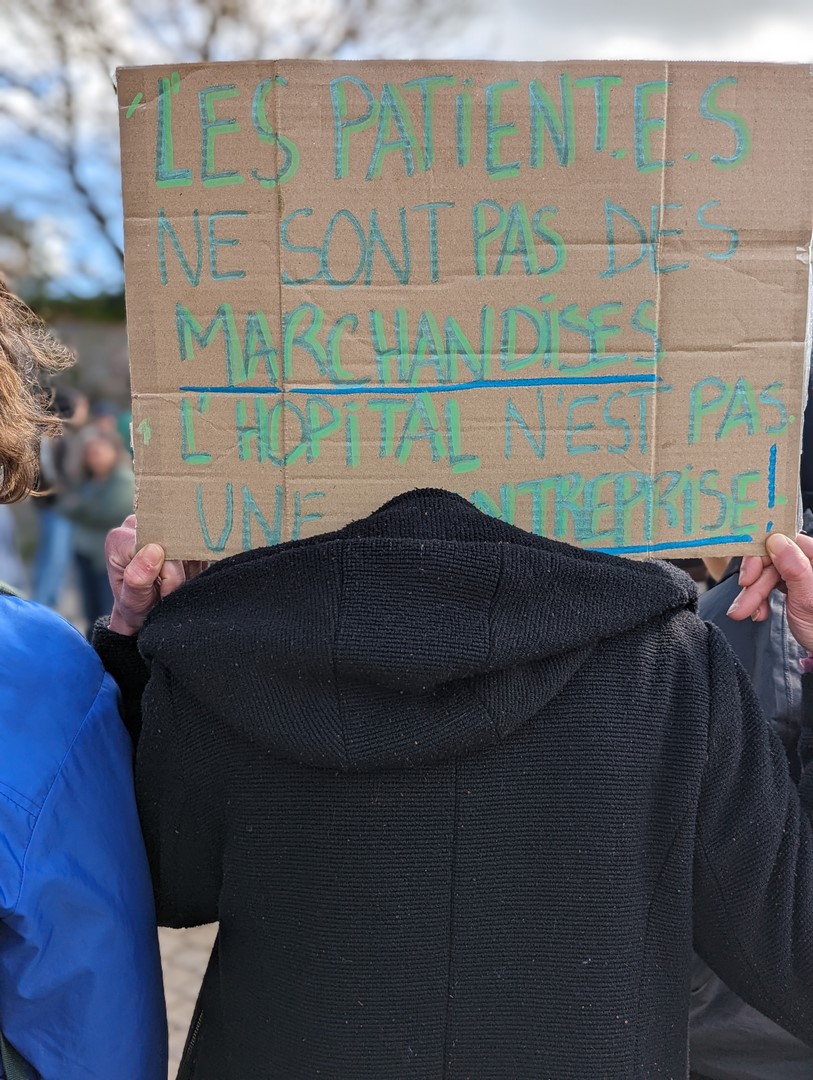 LES PATIENT.E.S
NE SONT PAS DES
MARCHANDISES
L'HOPITAL N'EST PAS
UNE NTREPRISE!